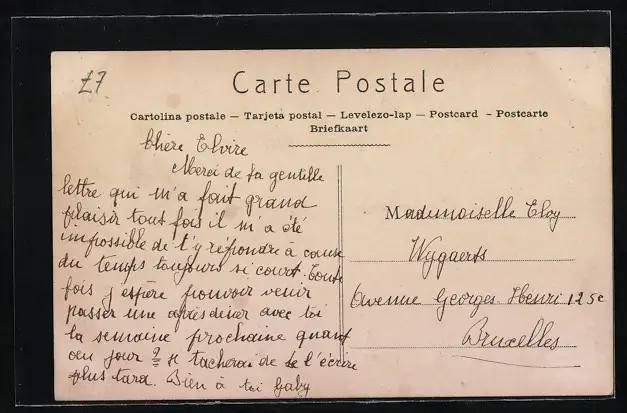 £7
Carte Postale
Cartolina postale — Tarjeta postal — Levelezo-lap — Postcard - Postcarte
Briefkaart
Chère Elvire
Merci de ta gentille
lettre qui m'a fait grand
plaisir tout fois il m'a été
impossible de t'y répondre à cause
du temps toujours si court. Toute
fois j'éspère pouvoir venir
passer une après diner avec toi
la semaine prochaine quant
au jour ? je tacherai de te l'écrire
plus tard. Bien à toi Gaby
Mademoiselle Eloy
Wygaerts
Avenue Georges Henri 125c
Bruxelles